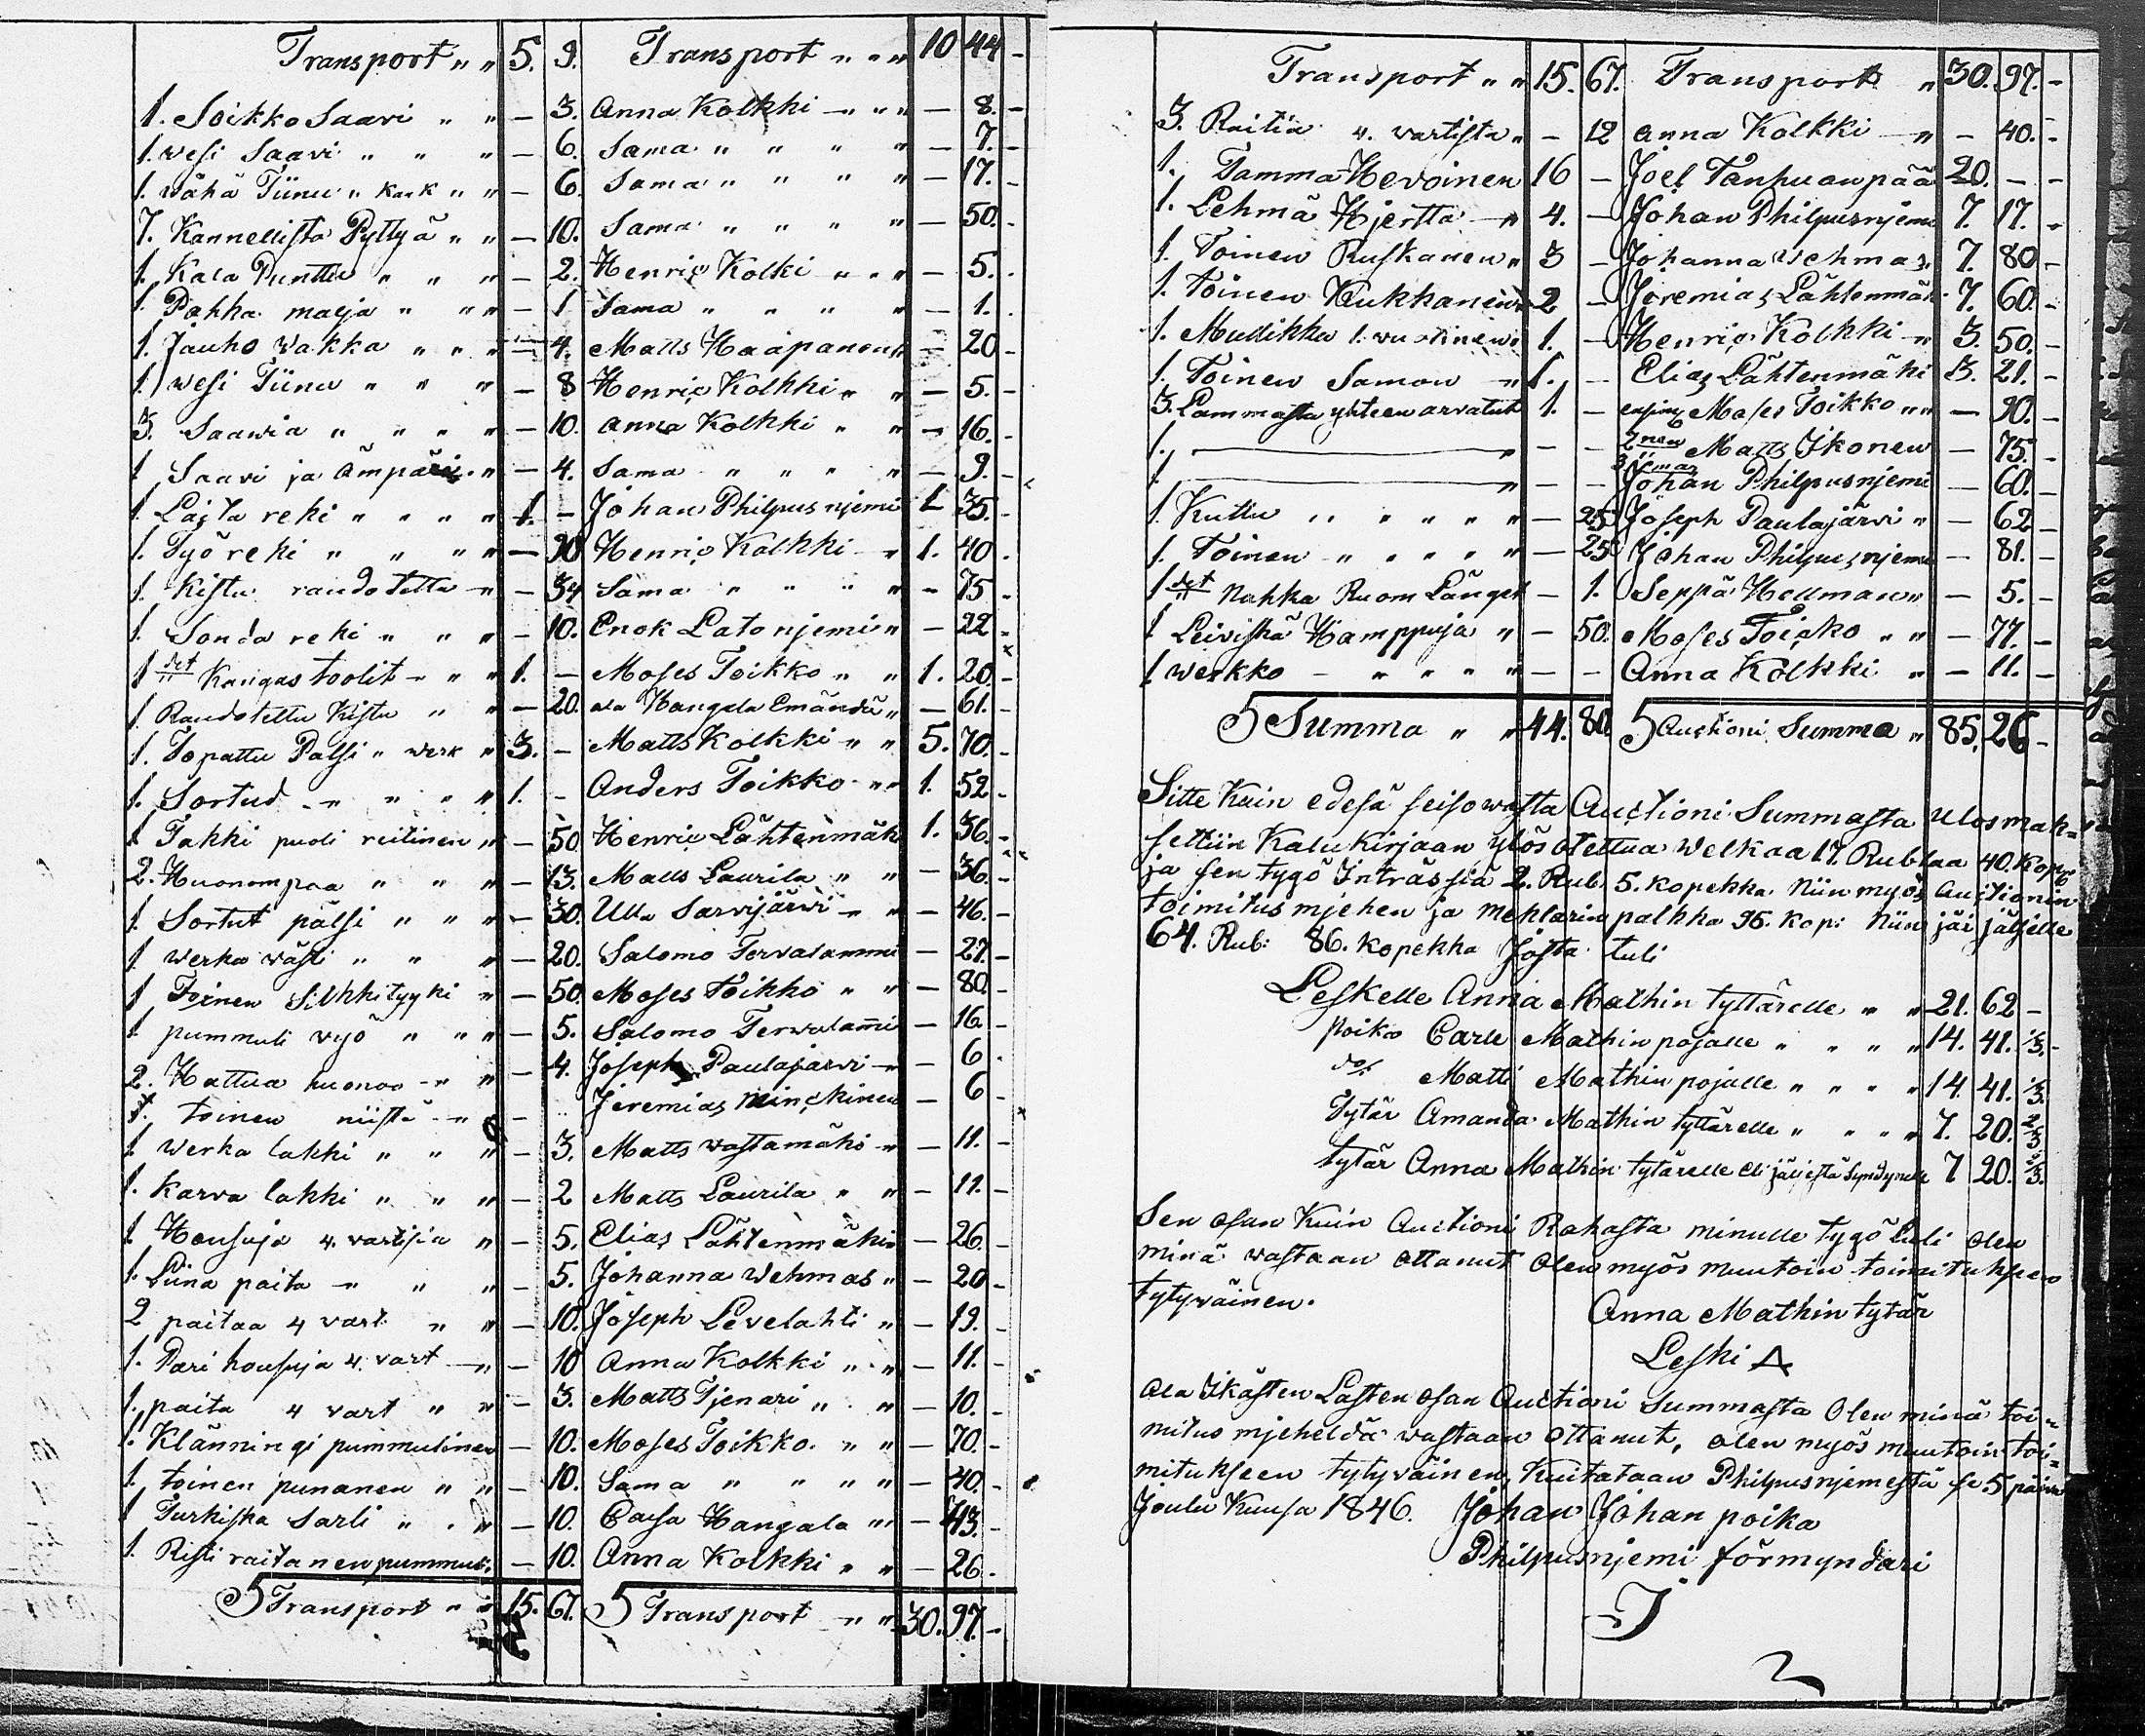 Transport " " 5. 9. Transport " " " 10 44 -
1. Soikko Saavi " " - 3. Anna Kolkki - " " - 8. -
1. wesi Saavi " " " - 6. Sama " " " " - 7. -
1. wähä Tiinu " kark " " - 6. Sama " " " " - 17. -
7. Kannellista Pyttyä " " - 10. Sama " " " " - 50. -
1. Kala Punttu " " " - 2. Henric Kolki " " " - 5. -
1. Pahka malja " " " - 1 Sama " " " " - 1. -
1. Jauho Wakka " " " - 4. Matts Haapanen " - 20 -
1. wesi Tiinu " " " - 8 Henric Kolkki " " - 5. -
3. Saawia " " " " - 10. Anna Kolkki " " - 16. -
1 Saavi ja Ämpäri " - 4. Sama " " " " - 9. -
1 Lasta reki " " " " 1. - Johan Philpusnjemi 1 35. -
1. Työ reki " " " - 90 Henric Kolkki - " 1. 40 -
1. Kistu raudotettu " - 34 Sama " " " " - 75 -
1. Sonda reki " " " - 10. Enok Latonjemi " - 22 -
1 Kangas toolit - " " 1. - Moses Toikko " " 1. 20 -
1. Raudotettu Kistu " " - 20. ala Hangala Emändä " - 61. -
1. Topattu Palsi " werk " 3. - Matts Kolkki " " 5. 70. -
1. Sortud - " " " " 1. - Anders Toikko " " 1. 52 -
1 Takki puoli reilinen " - 50 Henric Lähtenmäki 1. 36. -
2. Huonompaa " " " - 13. Matts Laurila " " - 36. -
1 Sortut pälsi " " " - 30. Ulla Sarvijärwi - " - 46. -
1 werka wästi " " " - 20. Salomo Tervalammi - 27. -
1 Toinen Silkkityyki " - 50. Moses Toikko " " - 80. -
1 pummuli wyö " " " - 5. Salomo Terwalammi - 16. -
2. Hattua huonoo - " " - 4. Joseph Paulajärvi - " - 6 -
1. toinen niistä - " - Jeremias Minckinen - 6 -
1 werka lakki " " " - 3. Matts wastamäki " - 11. -
1. Karva lakki " " " - 2 Matts Laurila " " - 11. -
1 Housuja 4. vartisia " - 5. Elias Lähtenmäki " - 26 -
1. Liina paita - " " " - 5. Johanna Wehmas " - 20 -
2 paitaa 4 vart. " " - 10. Joseph Levelahti " - 19. -
1. Pari housuja 4. vart - " - 10 Anna Kolkki " " " - 11. -
1. paita 4 vart " " - 3. Matts Tjenari " " " - 10. -
1. Klänningi pummulinen - 10. Moses Toikko. " " - 70. -
1. toinen punanen " " - 10. Sama " " " " - 40. -
1 Turkiska Sarli " " " - 10. Caisa Hangala " " - 43. -
1. Risti raitanen pummuli. - 10. Anna Kolkki " " - 26. -
Transport " " 15. 67. Transport - " " 30. 97. -
Transport " " 15. 67. Transport " 30. 97. -
3. Raitia 4. vartista " - 12 Anna Kolkki - " - 40. -
1. Tamma Hevoinen 16 - Joel Tanhuanpää 20. - -
1. Lehmä Hjertta - " 4. - Johan Philpusnjemi 7. 17. -
1. Toinen Ruskanen " 3 - Johanna Wehmas " 7. 80 -
1. Toinen Kukkanen " 2 - Jeremias Lähtenmäki 7. 60. -
1. Mullikka 1. wuotinen " 1. - Henric Kolkki - " 3. 50. -
1. Toinen Samon - " 1. - Elias Lähtenmäki 3. 21. -
3. Lammasta yhteen arvatut 1. - ensin Moses Toikko " " - 90. -
1. " - - 2nen Matts Ikonen - 75. -
1 " - - Johan Philpusnjemi - 60. -
1. Kuttu " " " " " - 25 Joseph Paulajärvi " - 62 -
1. Toinen - " " " " - 25 Johan Philpusnjemi - 81. -
1 Nahka Ruom Länget - 1. Seppä Hellman " - 5. -
1 Leiviskä Hamppuja " - 50. Moses Toicko " " - 77. -
1 werkko - " " " " - - Anna Kolkki " - 11. -
Summa " " 44. 80 Auctioni Summa " 85. 26 -
Sitte Kuin edesä seisowasta Auctioni Summasta Ulosmak=
settiin Kalukirjaan ylösotettua welkaa 17. Rublaa 40. Kop:
ja sen tygö Inträssiä 2. Rub. 5. kopekka Niin myös Auctionin
toimitus mjehen ja meklarin palkka 95. kop: Niin jäi jäljelle
64. Rub: 86. kopekka Josta tuli
Leskelle Anna Mathin tyttärelle " " 21. 62 -
poika Carle Mathin pojalle " " " " 14. 41. 1/3. -
do: Matti Mathin pojalle " " " " 14. 41. 1/3.
Tytär Amanda Mathin tyttärelle " " " " 7. 20. 2/3
tytär Anna Mathin tytärelle eli jälestä Syndynelle 7 20. 2/3.
Sen osan Kuin Auctioni Rahasta minulle tygö tuli olen
minä wastaan ottanut olen myös muutoin toimituksen
tytywäinen.
Anna Mathin tytär
Leski
Ala Ikäisten Lasten osan Auctioni Summasta Olen minä toi=
mitus mjeheldä wastaan ottanut, olen myös muutoin toi=
mitukseen tytywäinen, Kuitataan Philpusnjemestä se 5 päivä
Joulu Kuusa 1846. Johan Johan poika
Philpusnjemi förmyndari